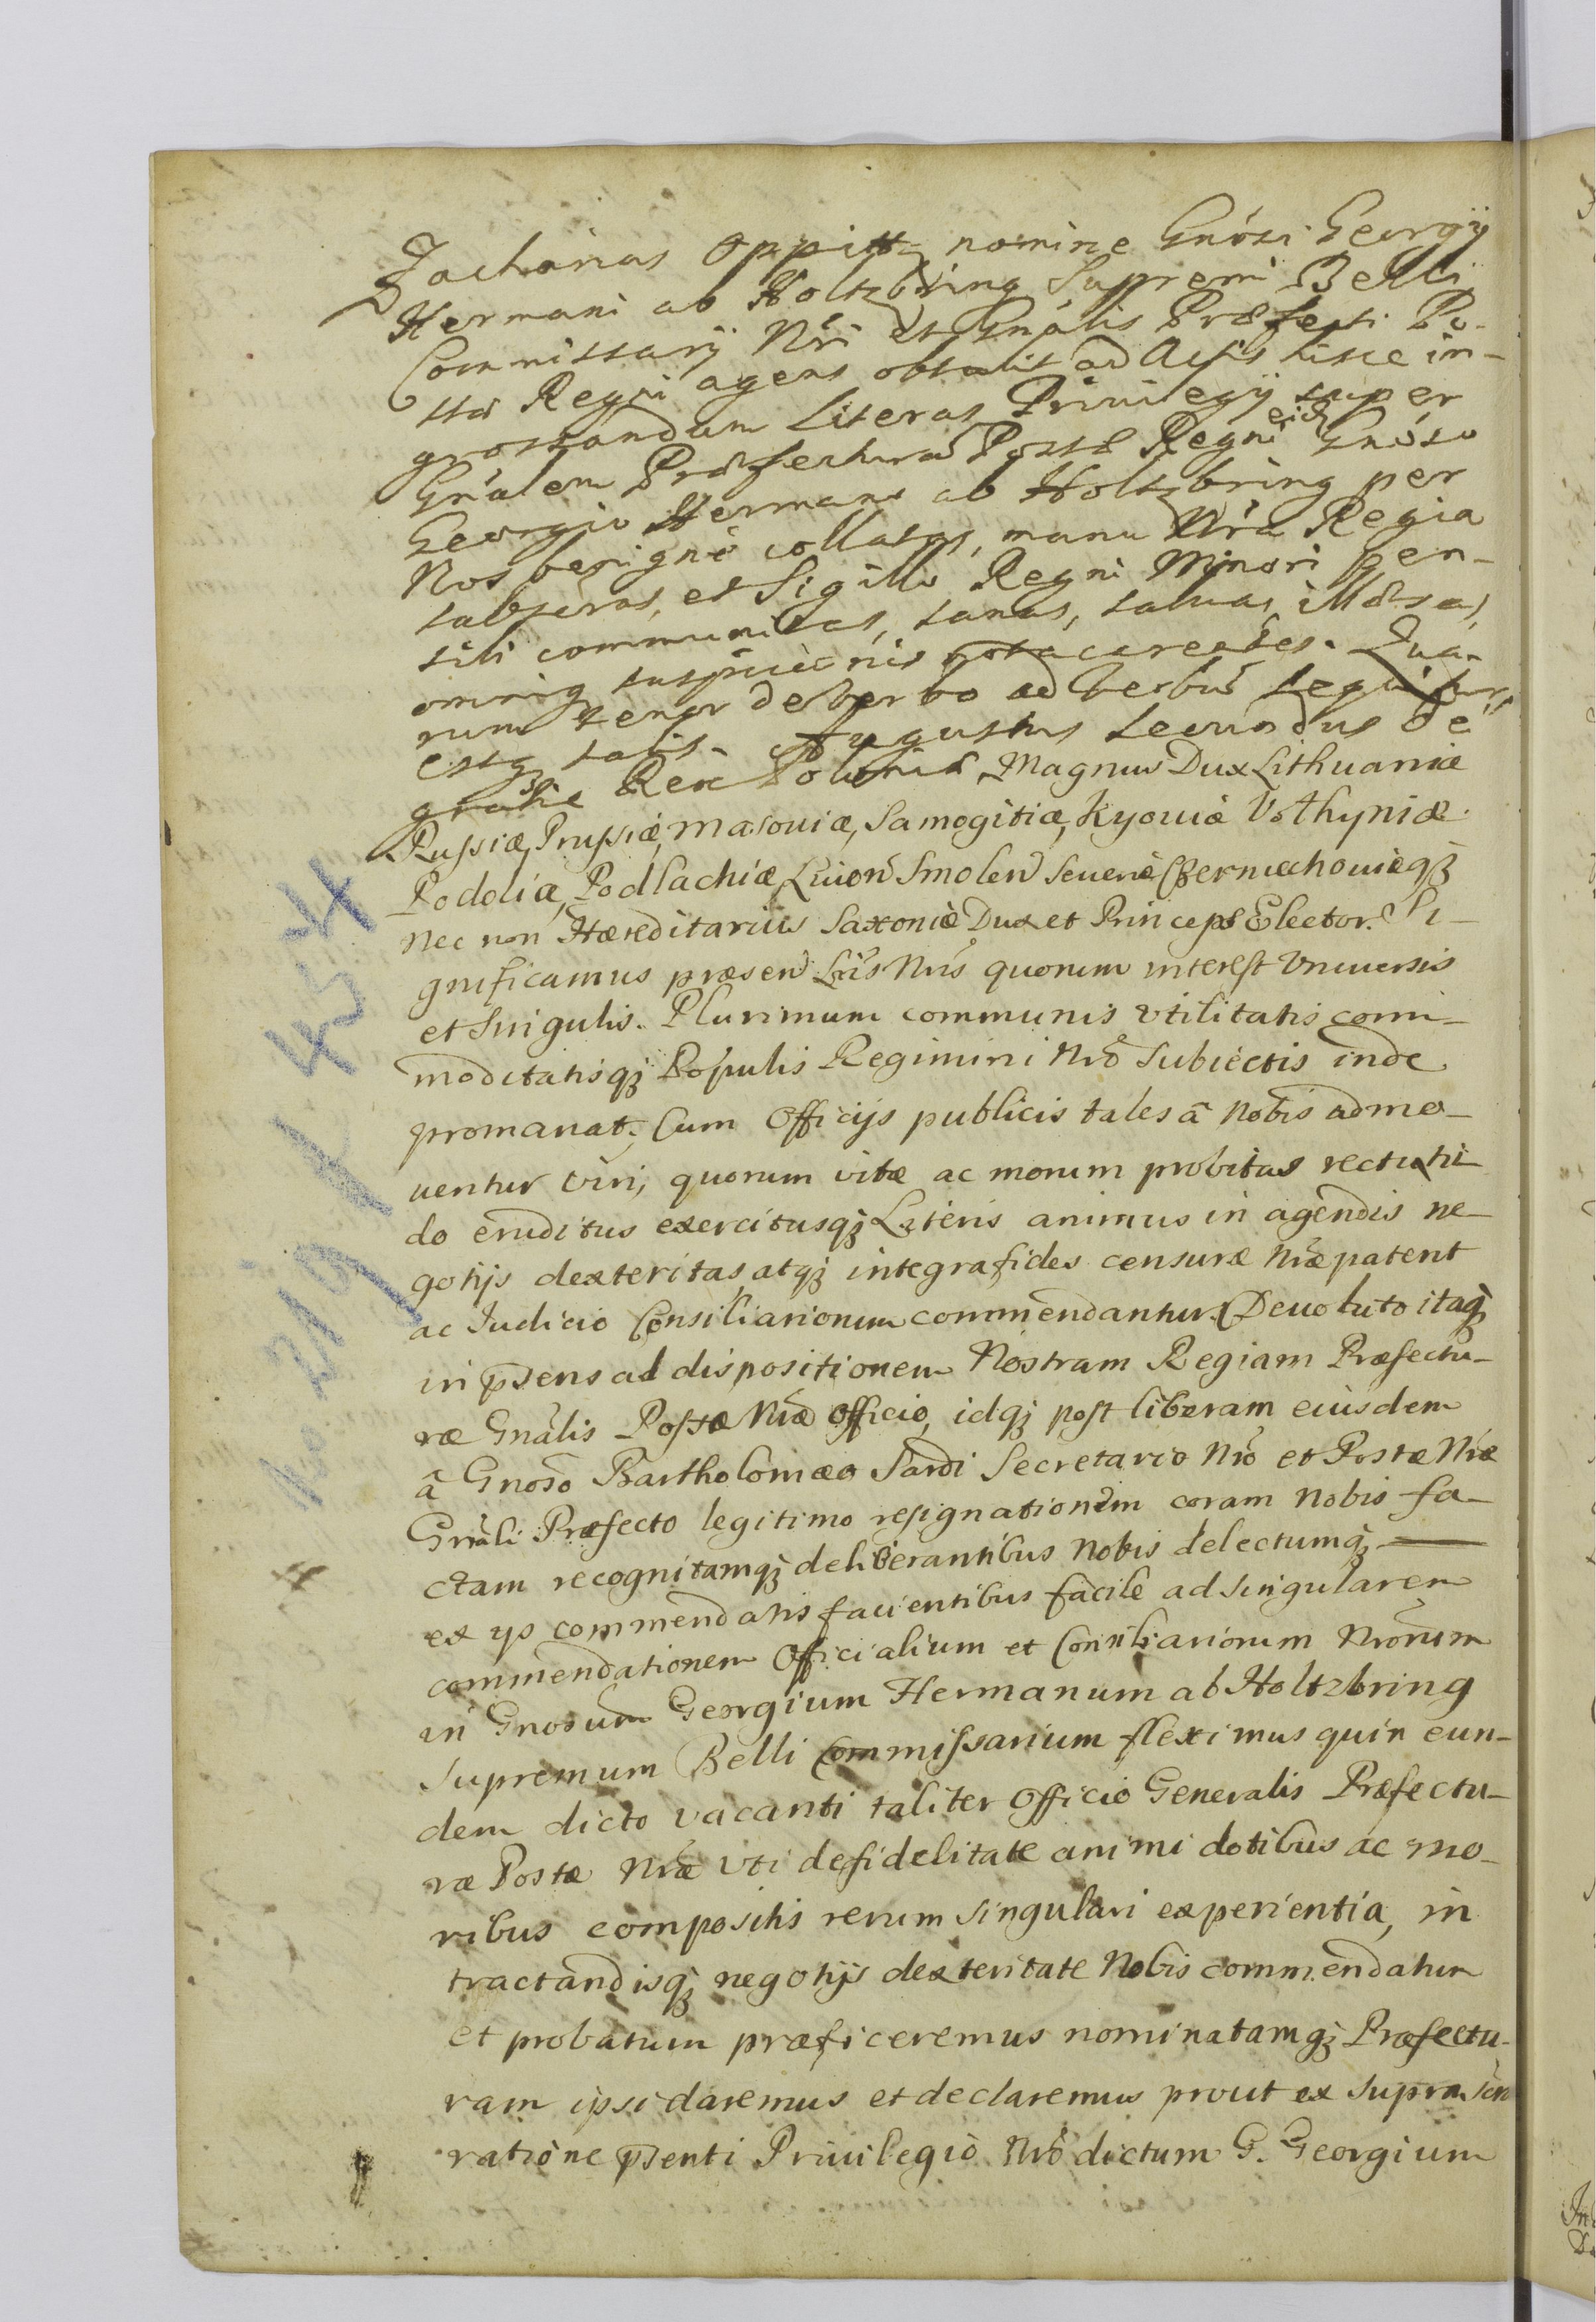 Zacharias Oppitz nomine Gnósi Georgÿ
Hermani ab Holtzbring Supremi Belli
Commissarÿ Nri et Gnalis Præfecti Po-
stæ Regni agens obtulit ad Acta hisce in-
grossandum Literas Priuilegÿ super
Gnalem Præfecturã Postæ Regni eid Gnoso
Georgio Hermano ab Holtzbring per
Nos benigné collatas, manu Nra Regia
subscras, et Sigillo Regni Minori pen-
sili communitas, sanas, saluas, illæsas,
omniq suspicionis nota carentes. Qua-
rum tenor de verbo ad verbũ sequitur
estq talis. Augustus Secundus Dei
gratia Rex Poloniæ, Magnus Dux Lithuaniæ
Russiæ, Prussiæ, Masouiæ, Samogitiæ, Kyouiæ Volhyniæ
Podoliæ, Podlachiæ, Liuon Smolen Seueriæ Czerniechouiæqꝫ
Nec non Hæreditarius Saxoniæ Dux et Princeps Elector. Si-
gnificamus præsen Lris Nris quorum interest Vniuersis
et Singulis. Plurimum communis vtilitatis com̃-
moditatisqꝫ Populis Regimini Nrõ Subiectis inde
promanat, Cum Officijs publicis tales â Nobis admo-
uentur Viri, quorum vitæ ac morum probitas rectitu-
do eruditus exercitusqꝫ Literis animus in agendis ne-
gotijs dexteritas, atqꝫ integra fides censuræ Nræ patent
ac Iudicio Consiliariorum commendantur. Deuoluto itaqꝫ
in p̃sens ad dispositionem Nostram Regiam Præfectu-
ræ Gnãlis Postæ Nræ Officio, idqꝫ post liberam eiusdem
â Gnoso Bartholomæo Sardi Secretario Nrõ et Postæ Nræ
Gnãli Præfecto legitimo resignationem coram Nobis fa-
ctam recognitamqꝫ deliberantibus Nobis delectumqꝫ
ex ijs commendatis facientibus facile ad singularem
commendationem Officialium et Consiliariorum Nrorum
in Gnosum Georgium Hermanum ab Holtzbring
Supremum Belli Commissarium fleximus quin eun-
dem dicto vacanti taliter Officio Generalis Præfectu-
ræ Postæ Nræ vti de fidelitate animi dotibus ac mo-
ribus compositis rerum singulari experientia, in
tractandisqꝫ negotijs dexteritate Nobis commendatum
et probatum præficeremus nominatamqꝫ Præfectu-
ram ipsi daremus et declaremus prout ex supra
ratione p̃senti Priuilegio Nrõ dictum G. Georgium